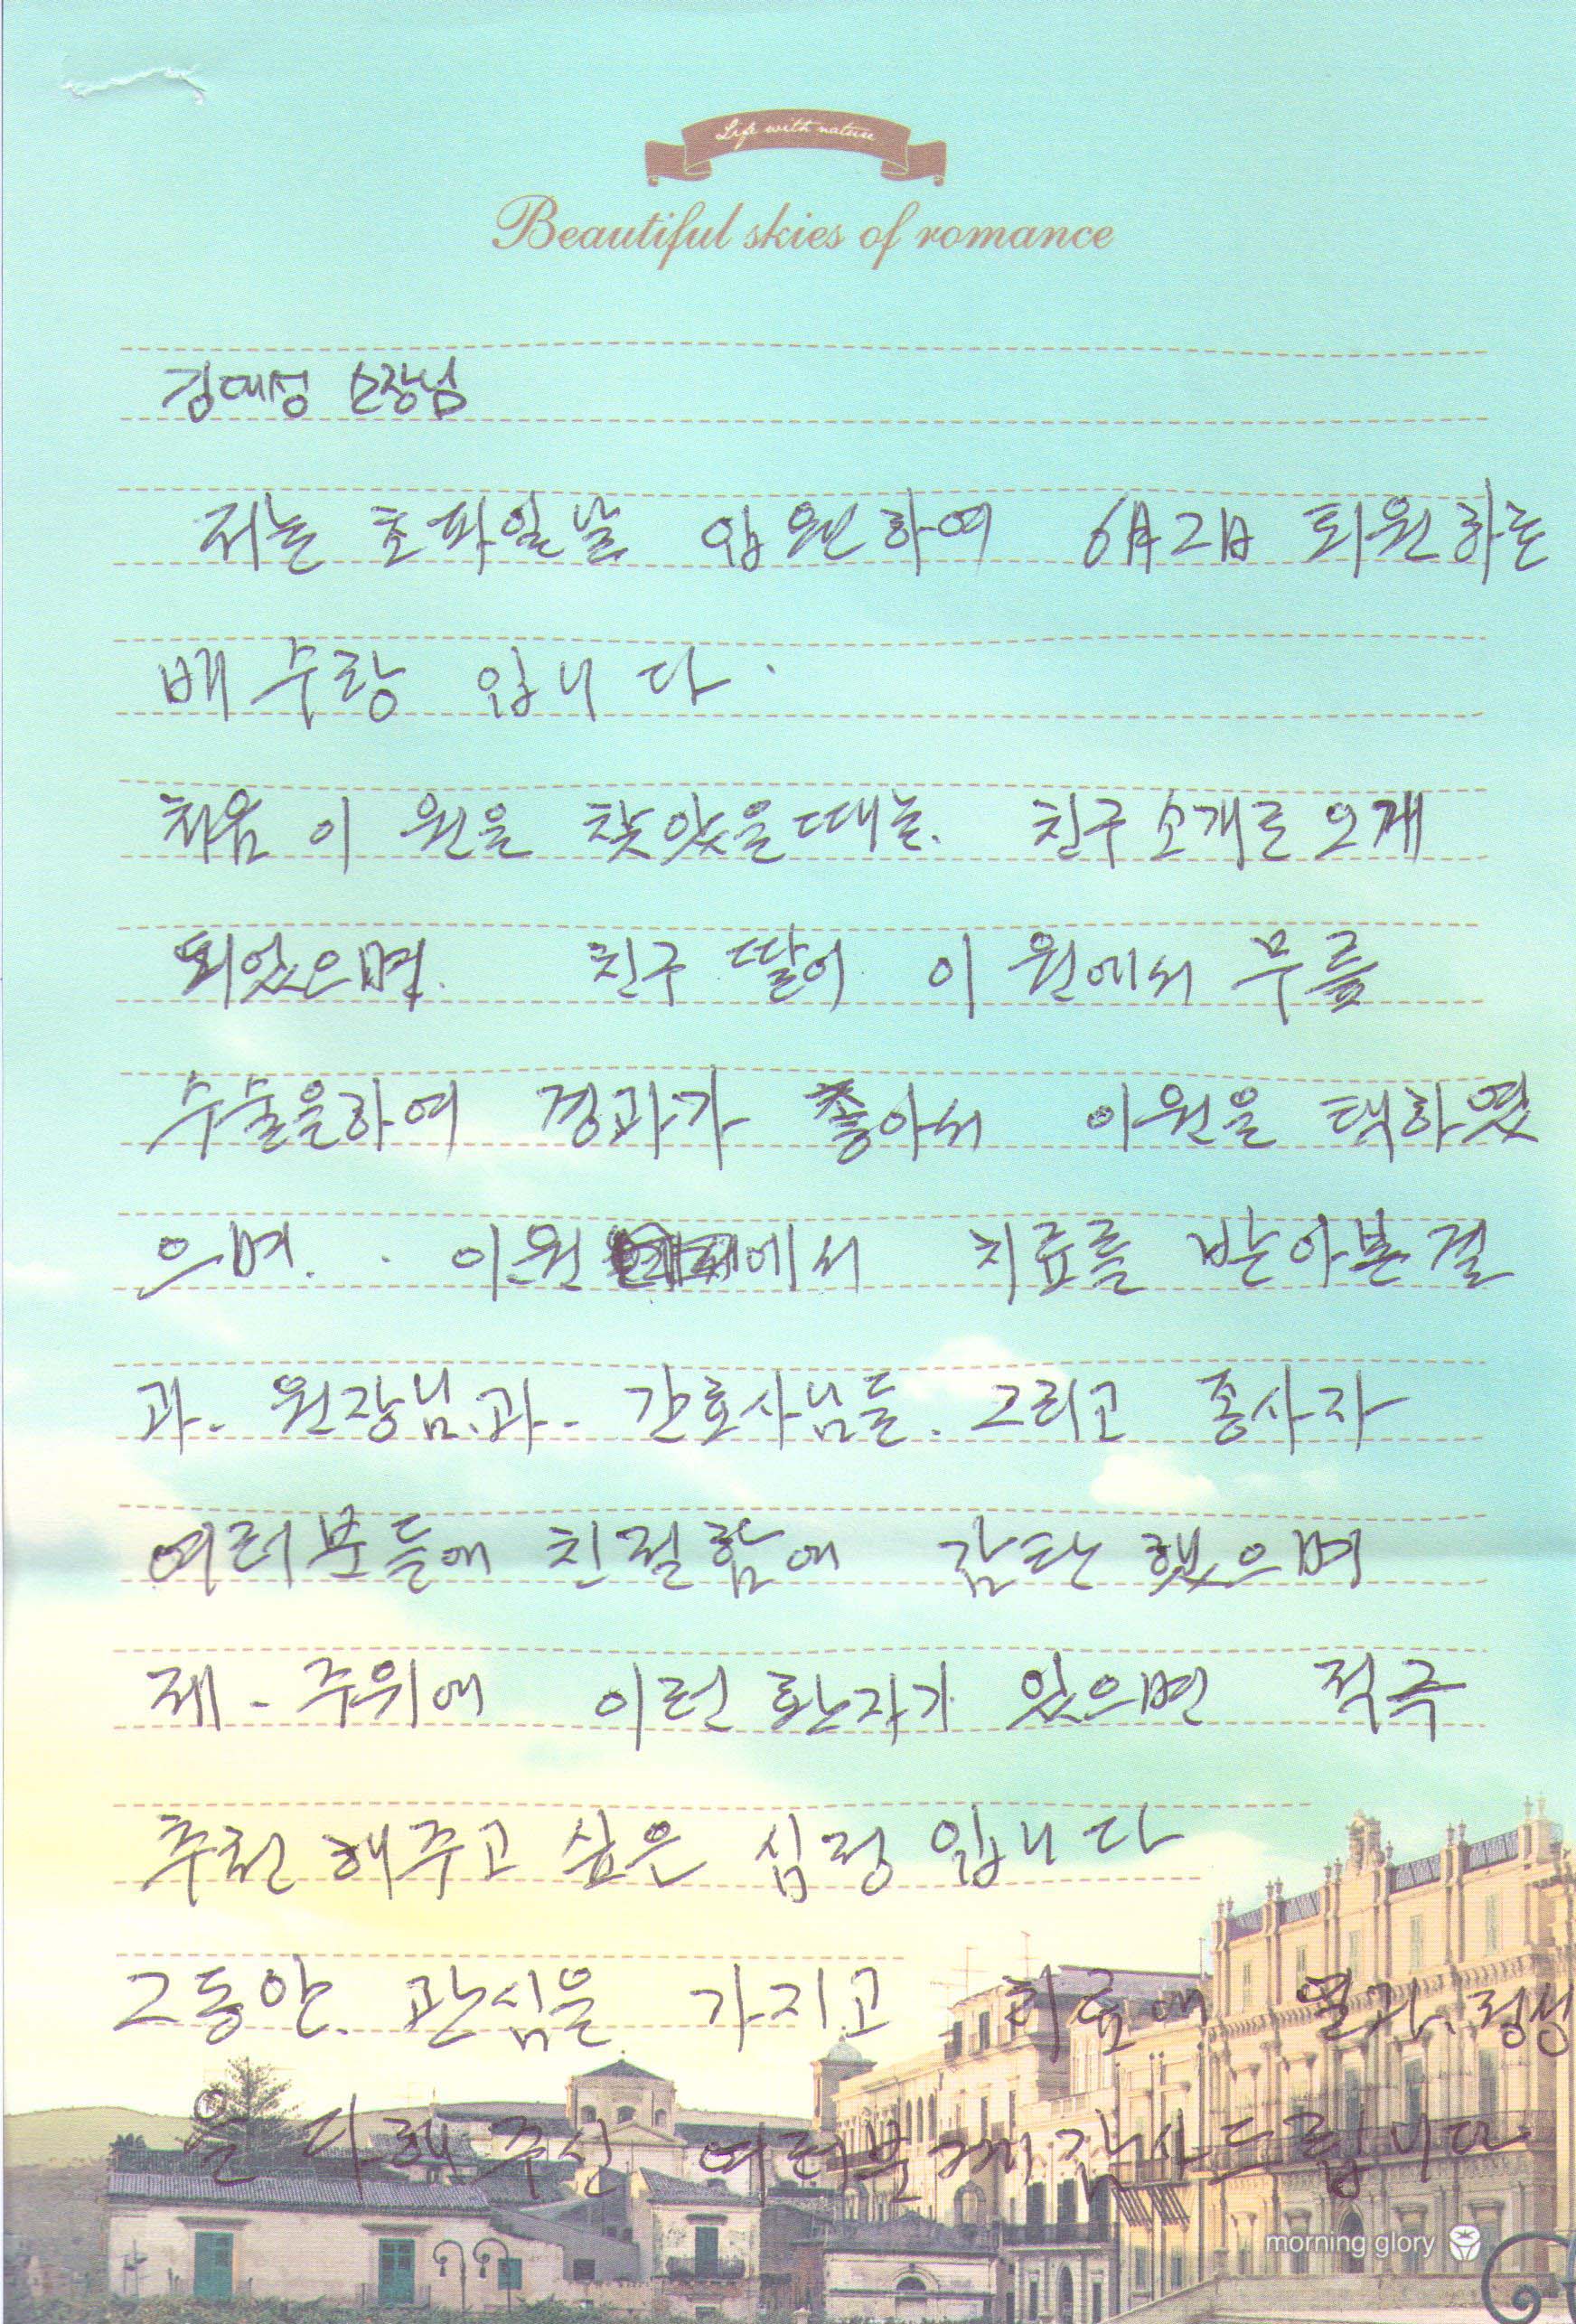 Life with nature
Beautiful skies of romance
김대성 소장님
저는 초파일날 입원하여 6月2日 퇴원하는
배수랑 입니다.
처음 이 원을 찾았을때는. 친구소개로오게
되었으며. 친구 딸이 이 원에서 무릎
수술을하여 경과가 좋아서 이원을 택하였
으며. 이원 에서 치료를 받아본결
과. 원장님.과. 간호사님들. 그리고 종사자
여러분들에 친절함에 감탄했으며
제 - 주위에 이런환자가 있으면 적극
추천해주고 싶은 심정입니다
그동안. 관심을 가지고 치료에 열과.정성
을 다해주신 여러분께감사드립니다.
morning glory